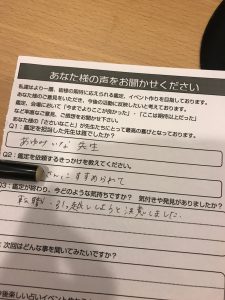 あなた様の声をお聞かせください
私達はより一層、皆様の期待に応えられる鑑定、イベント作りを目指しております。
あなた様のご意見をいただき、今後の活動に反映したいと考えております。
鑑定、会場において「今までよりここが良かった」・「ここは期待以上だった」
など率直なご意見、ご感想をお寄せください。
あなた様の「ささいなこと」が先生たちにとって最高の喜びとなっております。
Q1：鑑定を担当した先生は誰でしたか？
先生
Q2：鑑定を依頼するきっかけを教えてください。
さんにすすめられて
Q3：鑑定が終わり、今どのような気持ちですか？ 気付きや発見がありましたか？
転職・引っ越ししようと決意しました
次回はどんな事を聞いてみたいですか？
後楽しい占いイベント作り